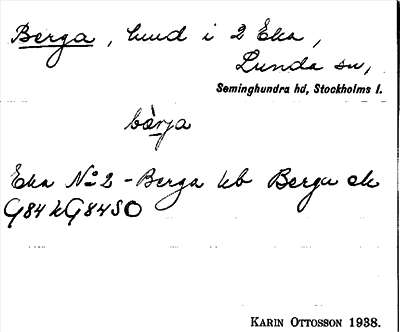 Berga, hmd i 2 Eka,
Lunda sn,
Seminghundra hd, Stockholms l.
bàrja
Eka No 2 - Berga kb Berga ek
G84 k G84SO
KARIN OTTOSSON 1938.